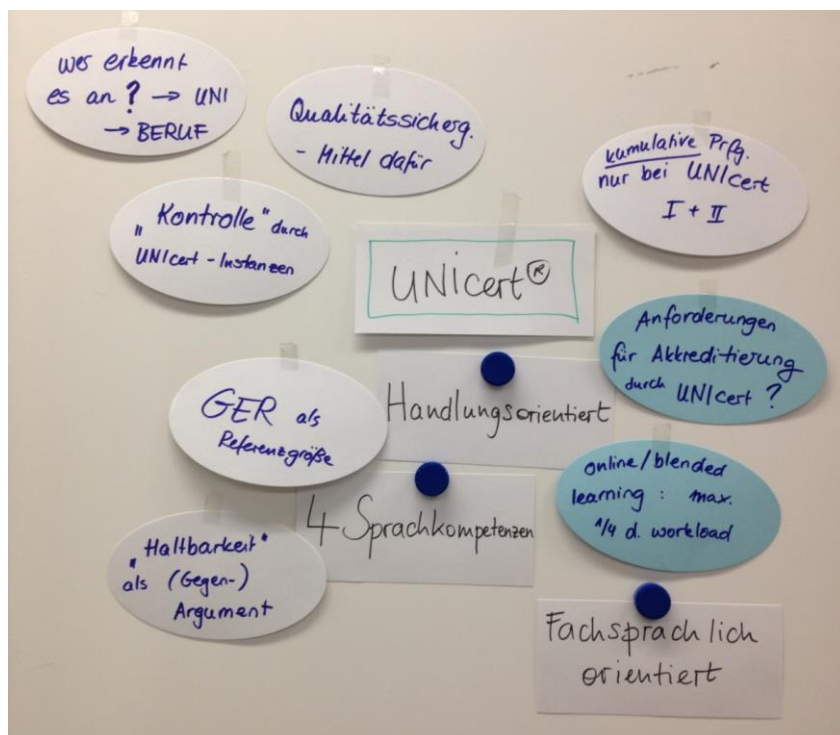 wer erkennt
es an? → UNI
→ BERUF
Qualitätssicherg.
- Mittel dafür
kumulative Prfg.
nur bei UNIcert
I + II
"Kontrolle" durch
UNIcert-Instanzen
UNIcert®
Anforderungen
für Akkreditierung
durch UNIcert?
GER als
Referenzgröße
Handlungsorientiert
online/blended
learning: max.
1/4 d. workload
4 Sprachkompetenzen
"Haltbarkeit"
als (Gegen-)
Argument
Fachsprachlich
orientiert